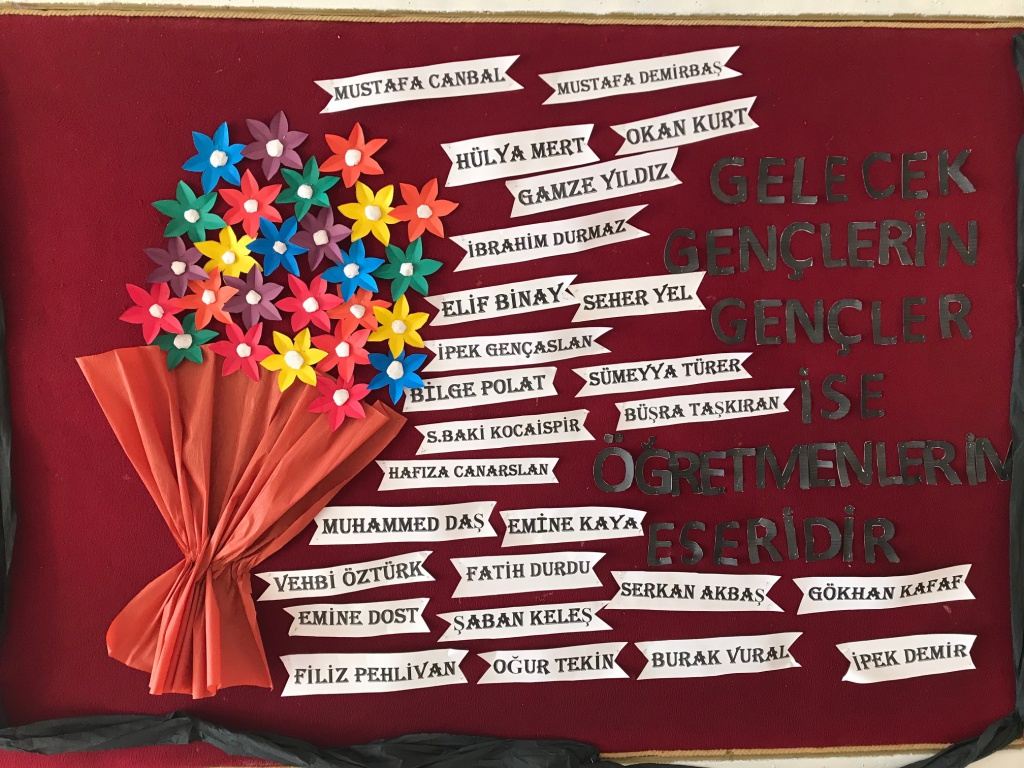 MUSTAFA CANBAL
MUSTAFA DEMİRBAŞ
HÜLYA MERT
OKAN KURT
GAMZE YILDIZ
İBRAHİM DURMAZ
ELİF BİNAY
SEHER YEL
İPEK GENÇASLAN
BİLGE POLAT
SÜMEYYA TÜRER
BÜŞRA TAŞKIRAN
S.BAKİ KOCAİSPİR
HAFIZA CANARSLAN
MUHAMMED DAŞ
EMİNE KAYA
VEHBİ ÖZTÜRK
FATİH DURDU
SERKAN AKBAŞ
GÖKHAN KAFAF
EMİNE DOST
ŞABAN KELEŞ
FİLİZ PEHLİVAN
OĞUR TEKİN
BURAK VURAL
İPEK DEMİR
GELECEK
GENÇLERİN
GENÇLER
İSE
ÖĞRETMENLERİM
ESERİDİR